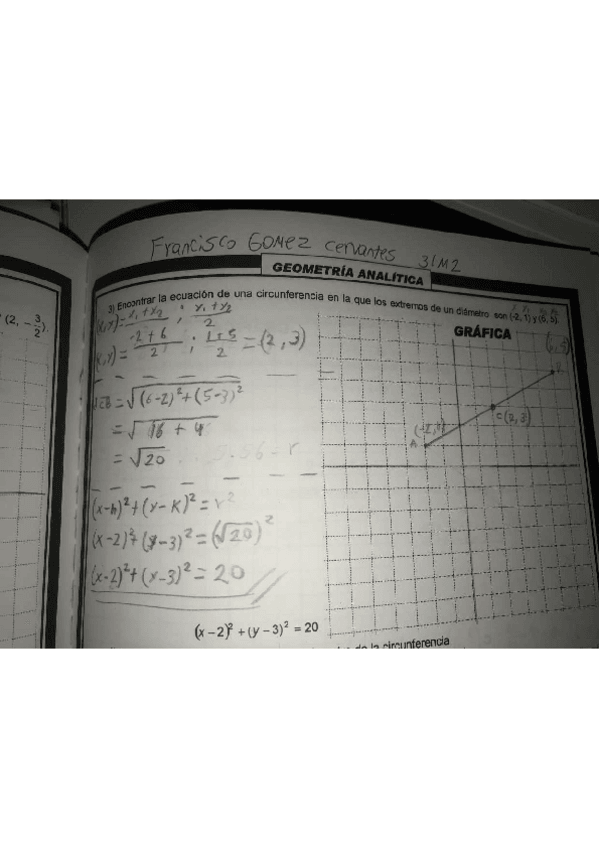 Francisco GOMEZ cervantes 3IM2
GEOMETRÍA ANALÍTICA
(2, -3/2).
3) Encontrar la ecuación de una circunferencia en la que los extremos de un diámetro son (-2, 1) y (6, 5).
(x,y)= x₁+x₂/2 ; y₁+y₂/2
(x,y) = -2+6/2 ; 1+5/2 = (2,3)
= √(6-2)²+(5-3)²
= √16 + 4
= √20
(x-h)²+(y-k)²=r²
(x-2)²+(y-3)²=(√20)²
(x-2)²+(y-3)²=20
GRÁFICA
C(2,3)
A
(x-2)² +(y-3)² = 20
de la circunferencia